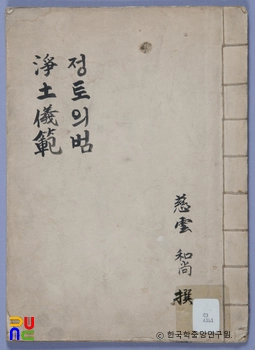 정토의범
淨土儀範
慈雲 和尙 撰
ⓒ 한국학중앙연구원